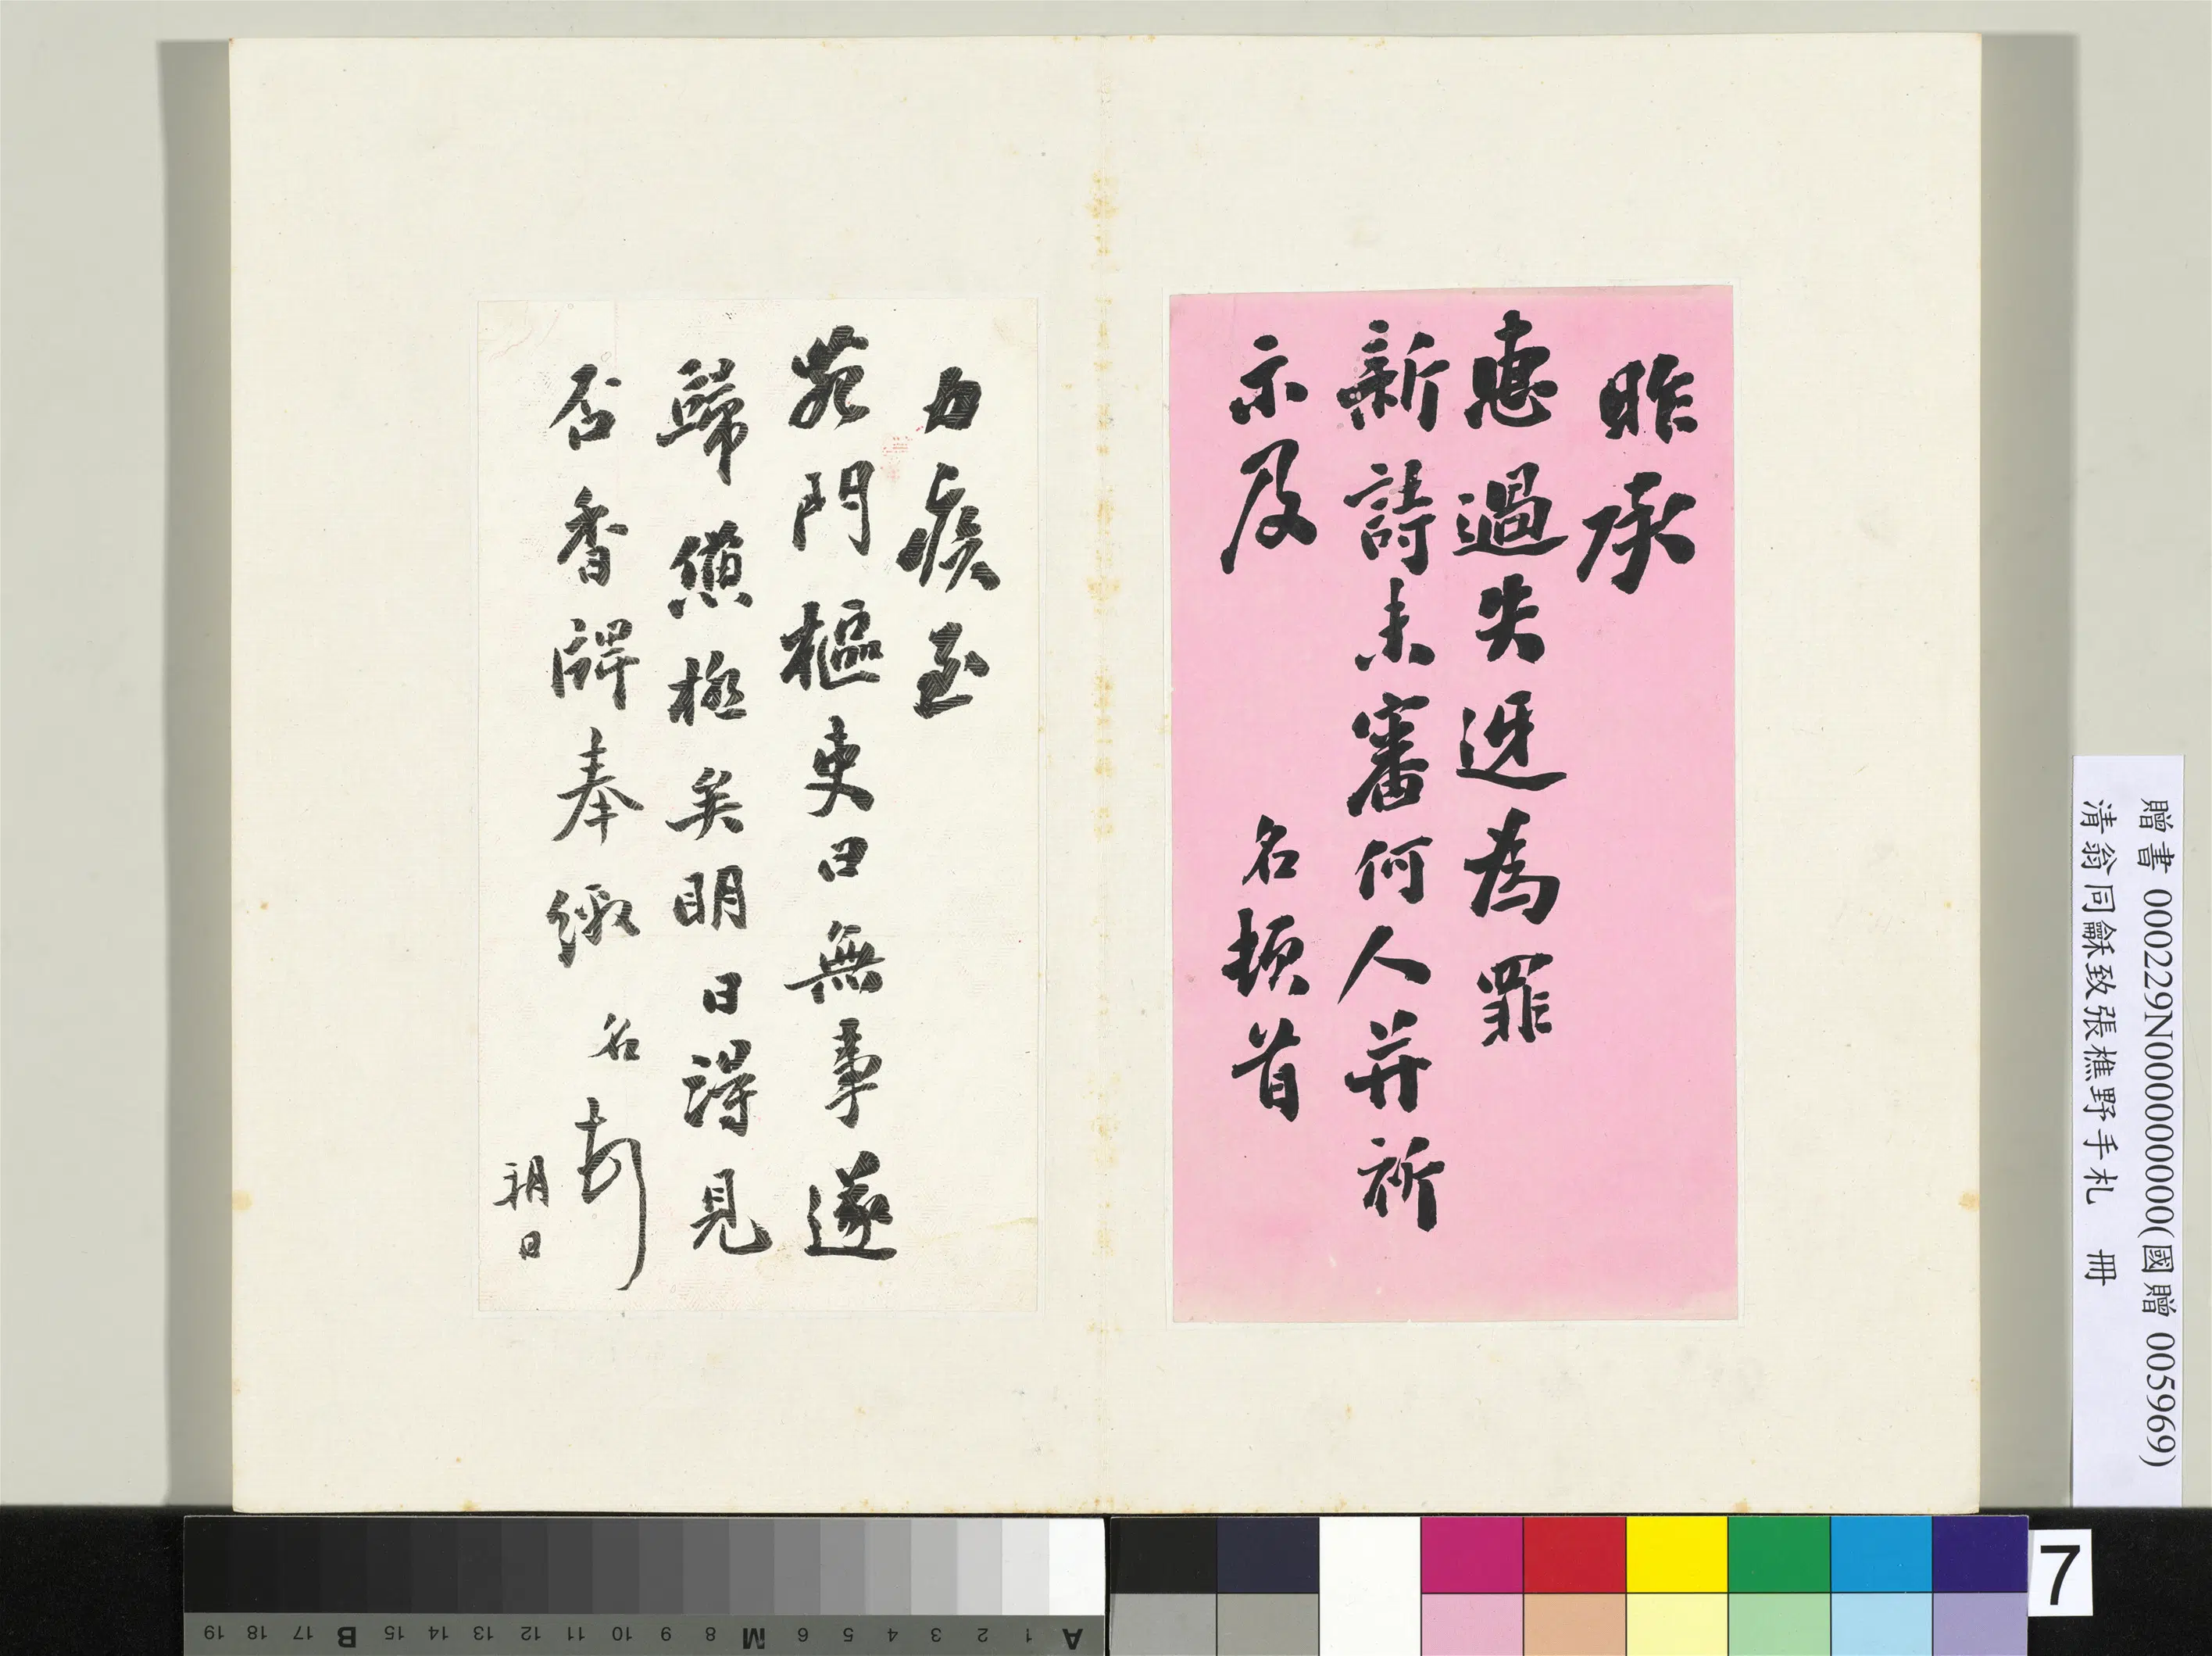 昨承
惠過失迓為罪
新詩未審何人并祈
示及
名頓首
力疾至
苑門樞吏曰無事遂
歸憊極矣明日得見
否香牌奉繳
名頓
朔日
贈書 000229N000000000(國贈 005969)
清翁同龢致張樵野手札 冊
7
A 1 2 3 4 5 6 M 8 9 10 11 12 13 14 15 B 17 18 19